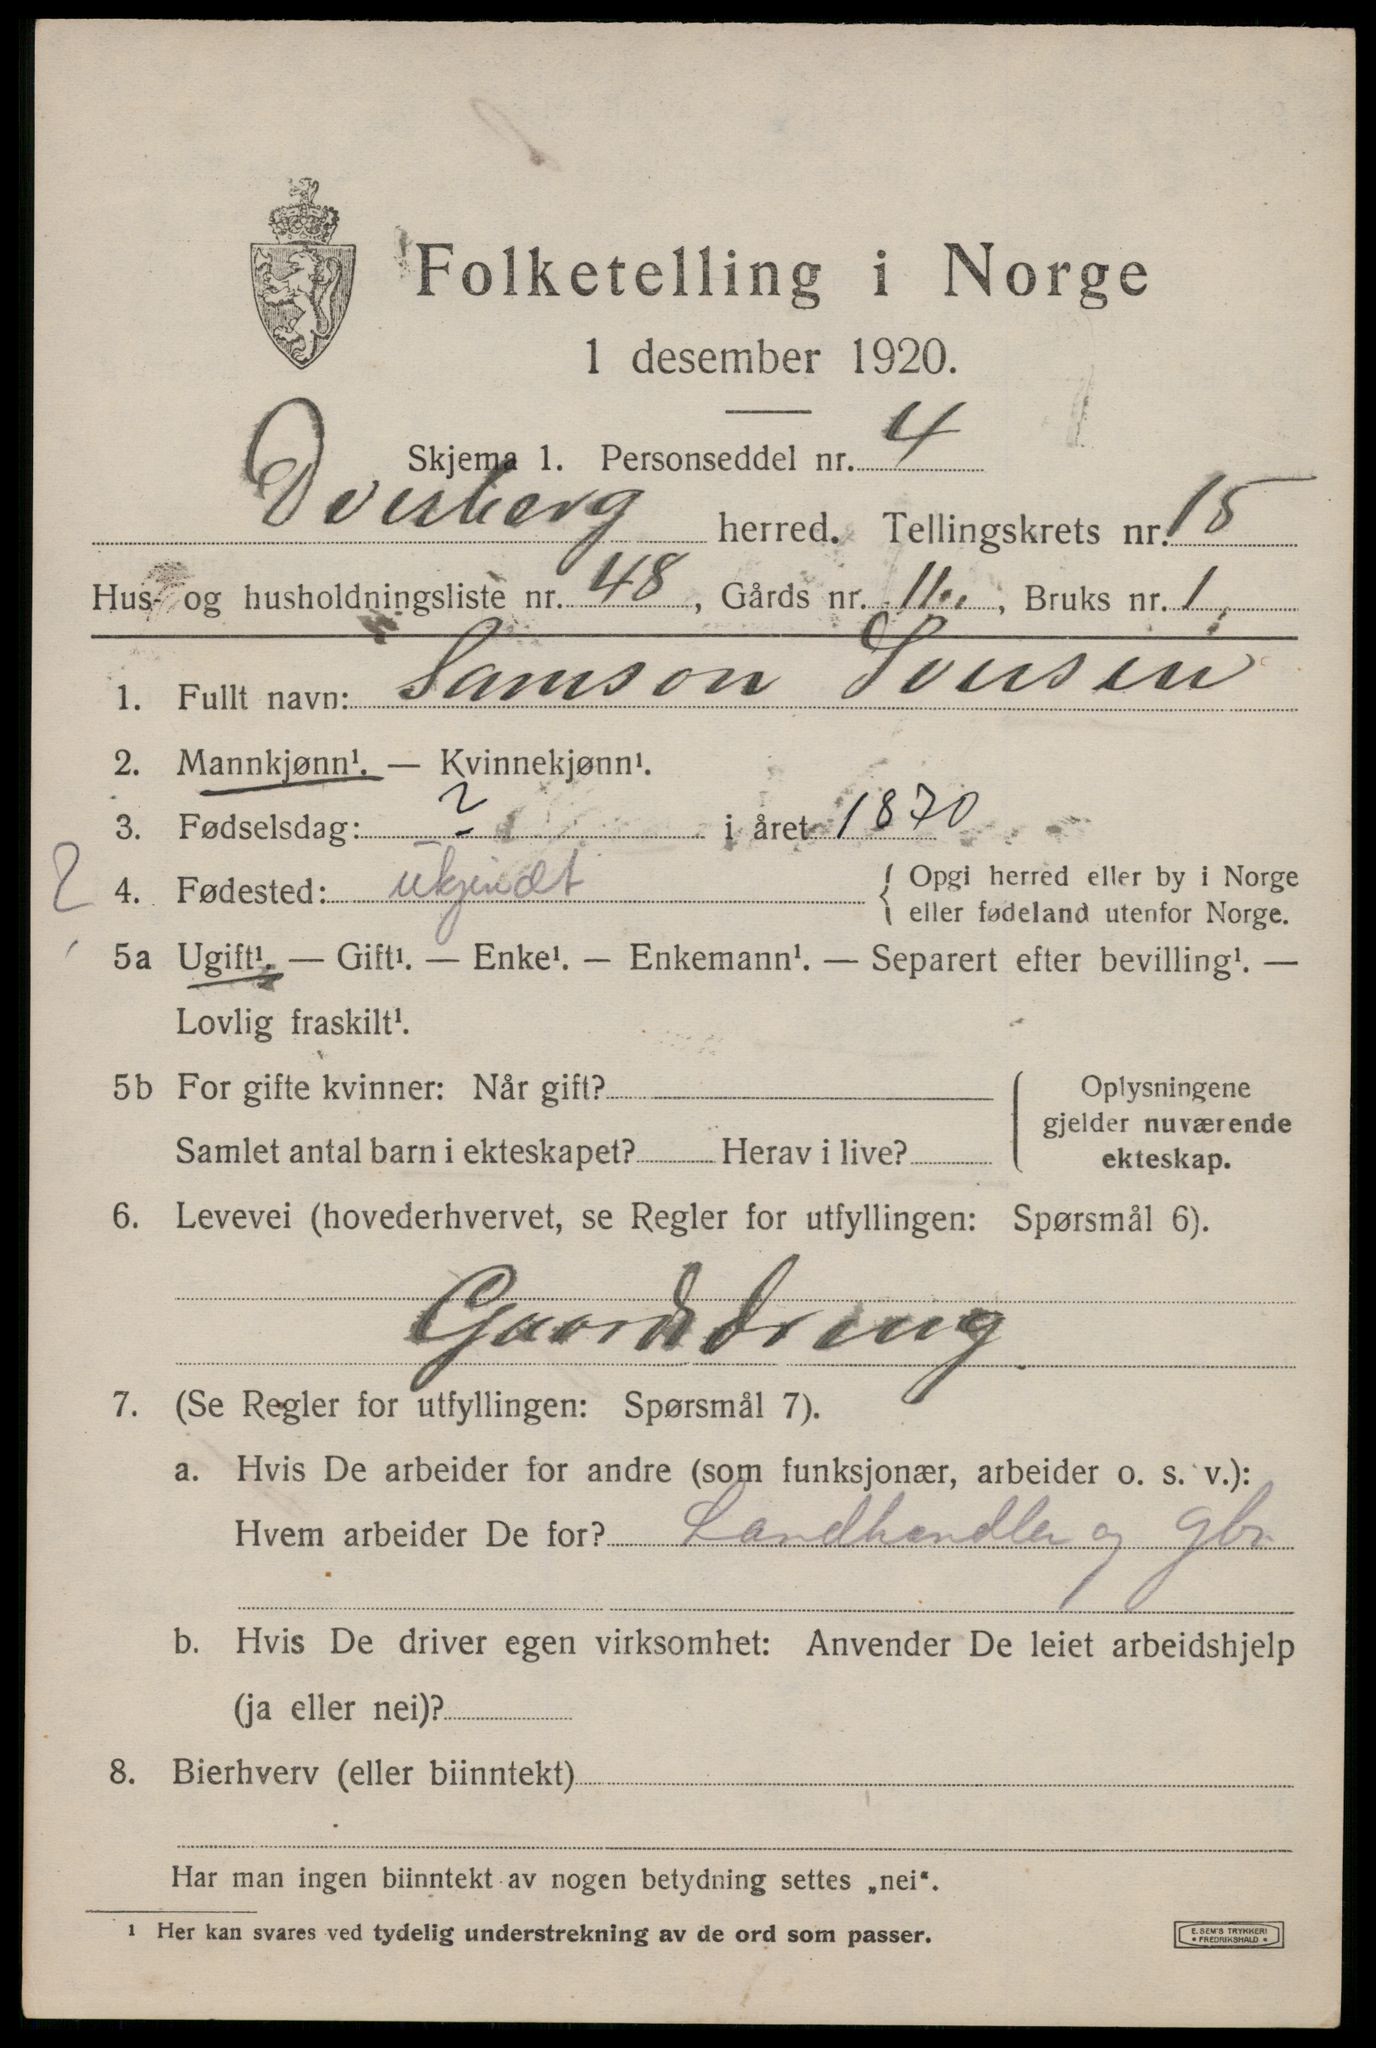 Folketelling i Norge
1 desember 1920.
Skjema 1. Personseddel nr. 4
Dverberg herred. Tellingskrets nr. 15
Hus- og husholdningsliste nr. 48, Gårds nr. 11, Bruks nr. 1
1. Fullt navn: Samson Iversen
2. Mannkjønn¹. — Kvinnekjønn¹.
3. Fødselsdag: ? i året 1870
? 4. Fødested: ukjendt { Opgi herred eller by i Norge
eller fødeland utenfor Norge.
5a Ugift¹. — Gift¹. — Enke¹. — Enkemann¹. — Separert efter bevilling¹. —
Lovlig fraskilt¹.
5b For gifte kvinner: Når gift? { Oplysningene
gjelder nuværende
Samlet antal barn i ekteskapet? Herav i live? ekteskap.
6. Levevei (hovederhvervet, se Regler for utfyllingen: Spørsmål 6).
Gaardsdreng
7. (Se Regler for utfyllingen: Spørsmål 7).
a. Hvis De arbeider for andre (som funksjonær, arbeider o. s. v.):
Hvem arbeider De for? Landhandler og gbr
b. Hvis De driver egen virksomhet: Anvender De leiet arbeidshjelp
(ja eller nei)?
8. Bierhverv (eller biinntekt)
Har man ingen biinntekt av nogen betydning settes „nei“.
¹ Her kan svares ved tydelig understrekning av de ord som passer.
E. SEM'S TRYKKERI
* FREDRIKSHALD *